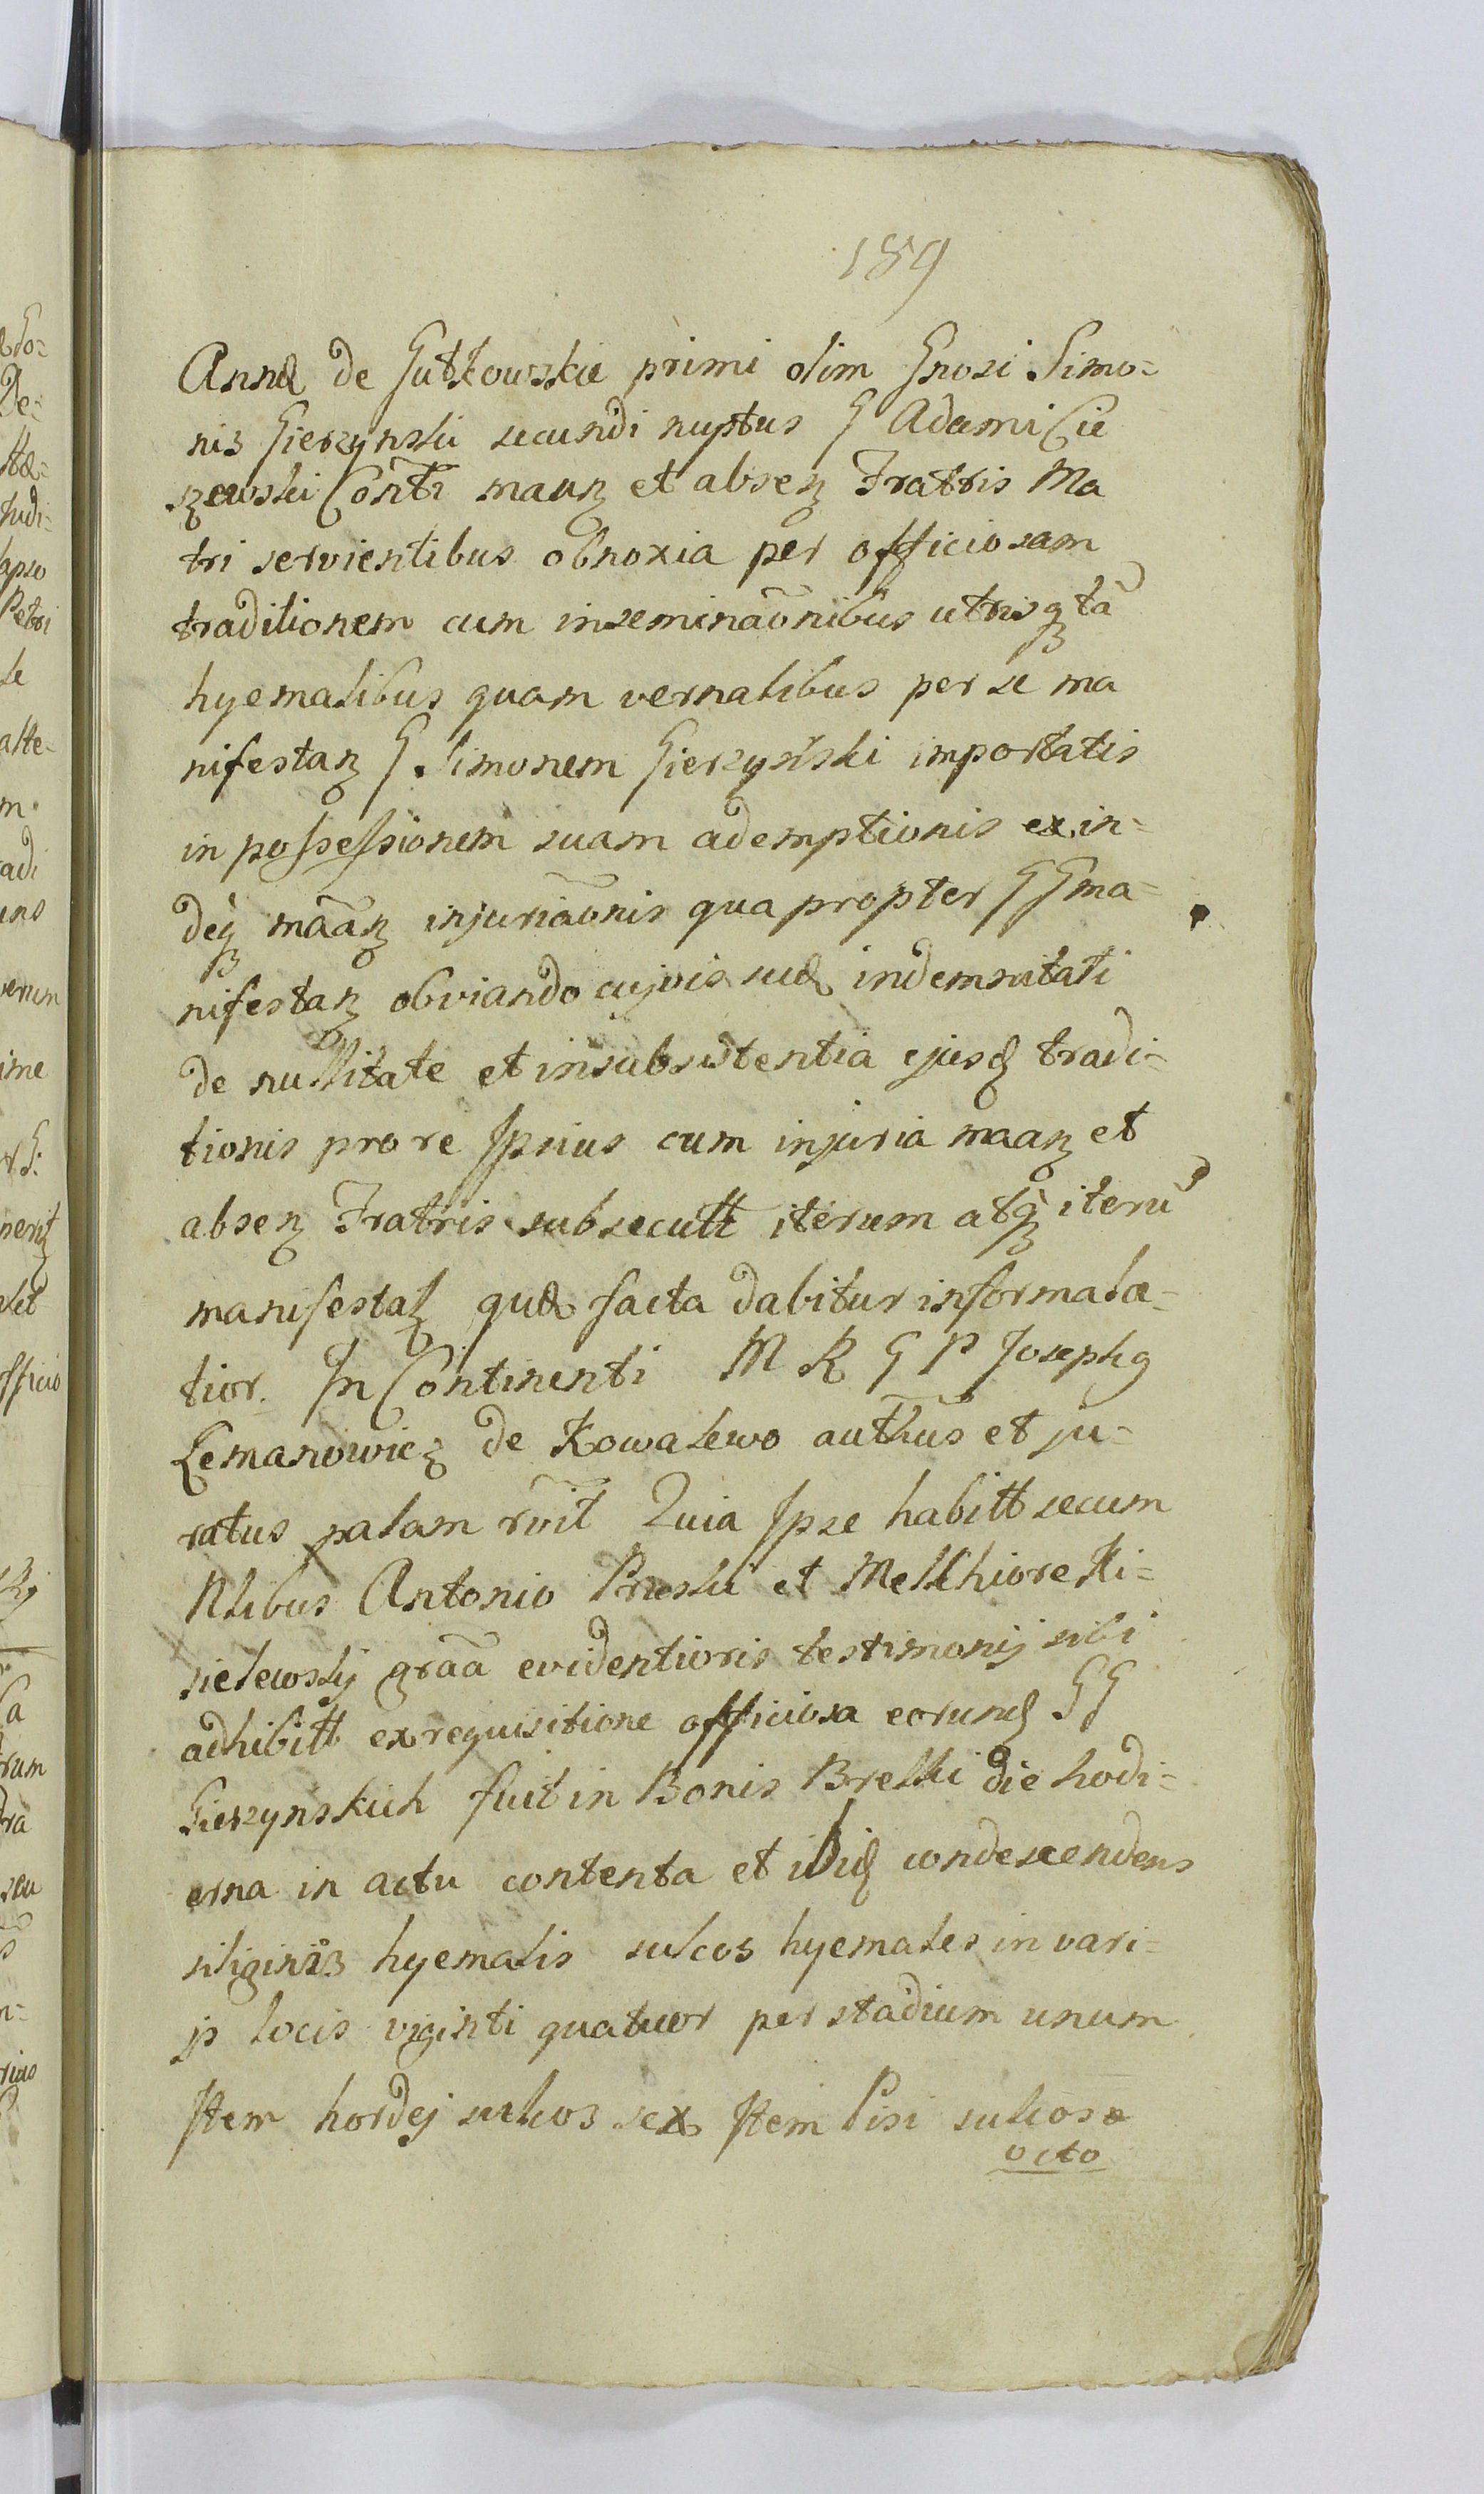 189
Annæ de Gutkowskie primi olim Gnosi Simo=
nis Gierzynski secundi nuptus G Adami Cie
szewski Conti maan et absen Fratris Ma
tri servientibus obnoxia per officiosam
traditionem cum inseminaonibus utrisq tã
hyemalibus quam vernalibus per se ma
nifestan G. Simonem Gierzyński importatis
in possessionem suam ademptionis ex in=
deq maan injuriaonis qua propter GG ma=
nifestan obviando cujvis suæ indemnitati
de nullitate et insubsistentia ejusd tradi=
tionis pro re Ipsius cum injuria maan et
absen Fratris subsecutt iterum atq iterũ
manifestat quæ facta dabitur informata=
tior. In Continenti M R G P Josephq
Lemanowicz de Kowalewo authus et ju=
ratus palam rvit Quia Ipse habitt secum
Nlibus Antonio Pruski et Melchiore Ki=
sielewsky graa evidentioris testimonij sibi
adhibitt ex requisitione officiosa eorund GG
Gierzynskich fuit in Bonis Brelki die hodi=
erna in actu contenta et ibid condescendens
siliginis hyemalis sulcos hyemales in vari=
js locis viginti quatuor per stadium unum
Item hordej sulcos sex Item Pisi sulcos
octo